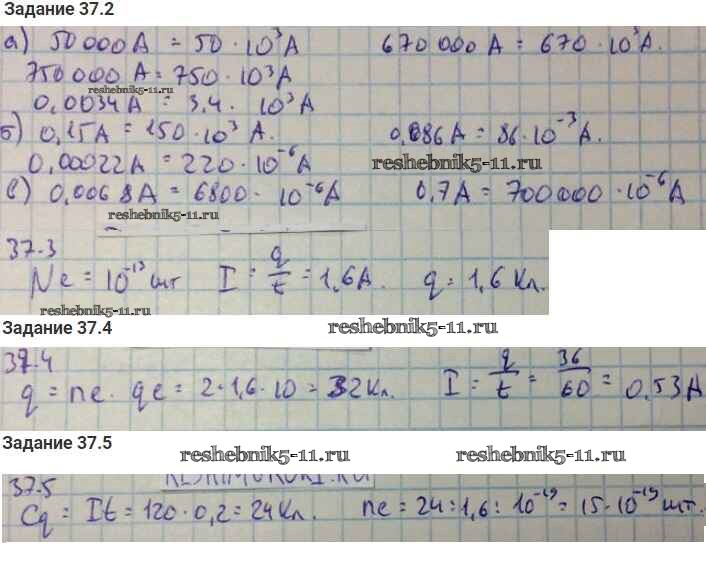 Задание 37.2
а) 50 000 А = 50 · 10³ А 670 000 А = 670 · 10³ А.
750 000 А = 750 · 10³ А
reshebnik5-11.ru
0,0034 А = 3,4 · 10³ А
б) 0,15 А = 150 · 10³ А. 0,086 А = 86 · 10⁻³ А.
0,00022 А = 220 · 10⁻⁶ А reshebnik5-11.ru
в) 0,0068 А = 6800 · 10⁻⁶ А 0,7 А = 700000 · 10⁻⁶ А
reshebnik5-11.ru
37.3
Ne = 10⁻¹³ шт I = q/t = 1,6 А. q = 1,6 Кл.
reshebnik5-11.ru
Задание 37.4 reshebnik5-11.ru
37.4
q = ne · qe = 2 · 1,6 · 10 = 32 Кл. I = q/t = 36/60 = 0,53 А
Задание 37.5 reshebnik5-11.ru reshebnik5-11.ru
37.5
Cq = It = 120 · 0,2 = 24 Кл. ne = 24 : 1,6 : 10⁻¹⁹ = 15 · 10⁻¹⁹ шт.